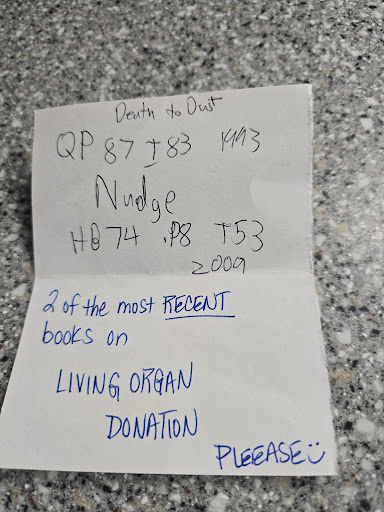 Death to Dust
QP 87 I83 1993
Nudge
HB 74 .P8 T53
2009
2 of the most RECENT
books on
LIVING ORGAN
DONATION
PLEEASE :)